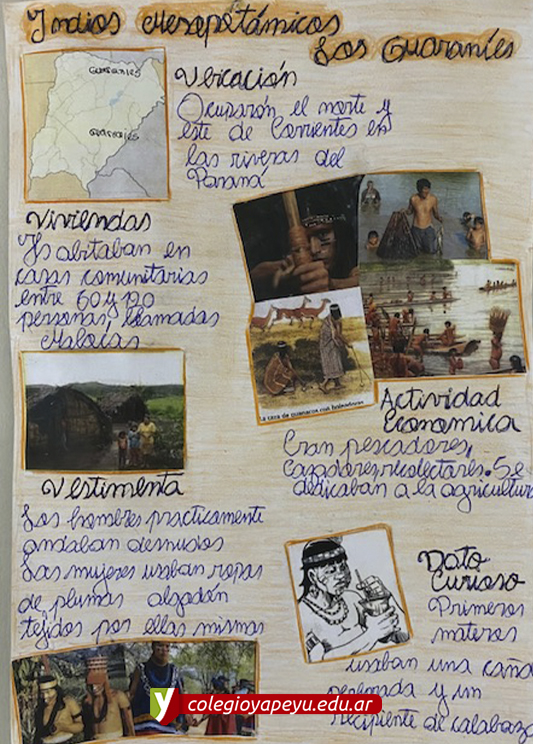 Indios Mesopotámicos
Los Guaraníes
Guaraníes
Guaraníes
Ubicación
Ocuparón el norte y
este de Corrientes en
las riveras del
Paraná
Viviendas
abitaban en
casas comunitarias
entre 60 y 120
personas, llamadas
Malocas
La caza de guanacos con boleadoras
Actividad
Economica
Eran pescadores,
Cazadores, recolectares. Se
dedicaban a la agricultura
Vestimenta
Los hombres practicamente
andaban desnudos
Las mujeres usaban ropas
de plumas algodón
tejidos por ellas mismas
Dato
Curioso
Primeros
materos
usaban una caña
perforada y un
recipiente de calabaza
y colegioyapeyu.edu.ar